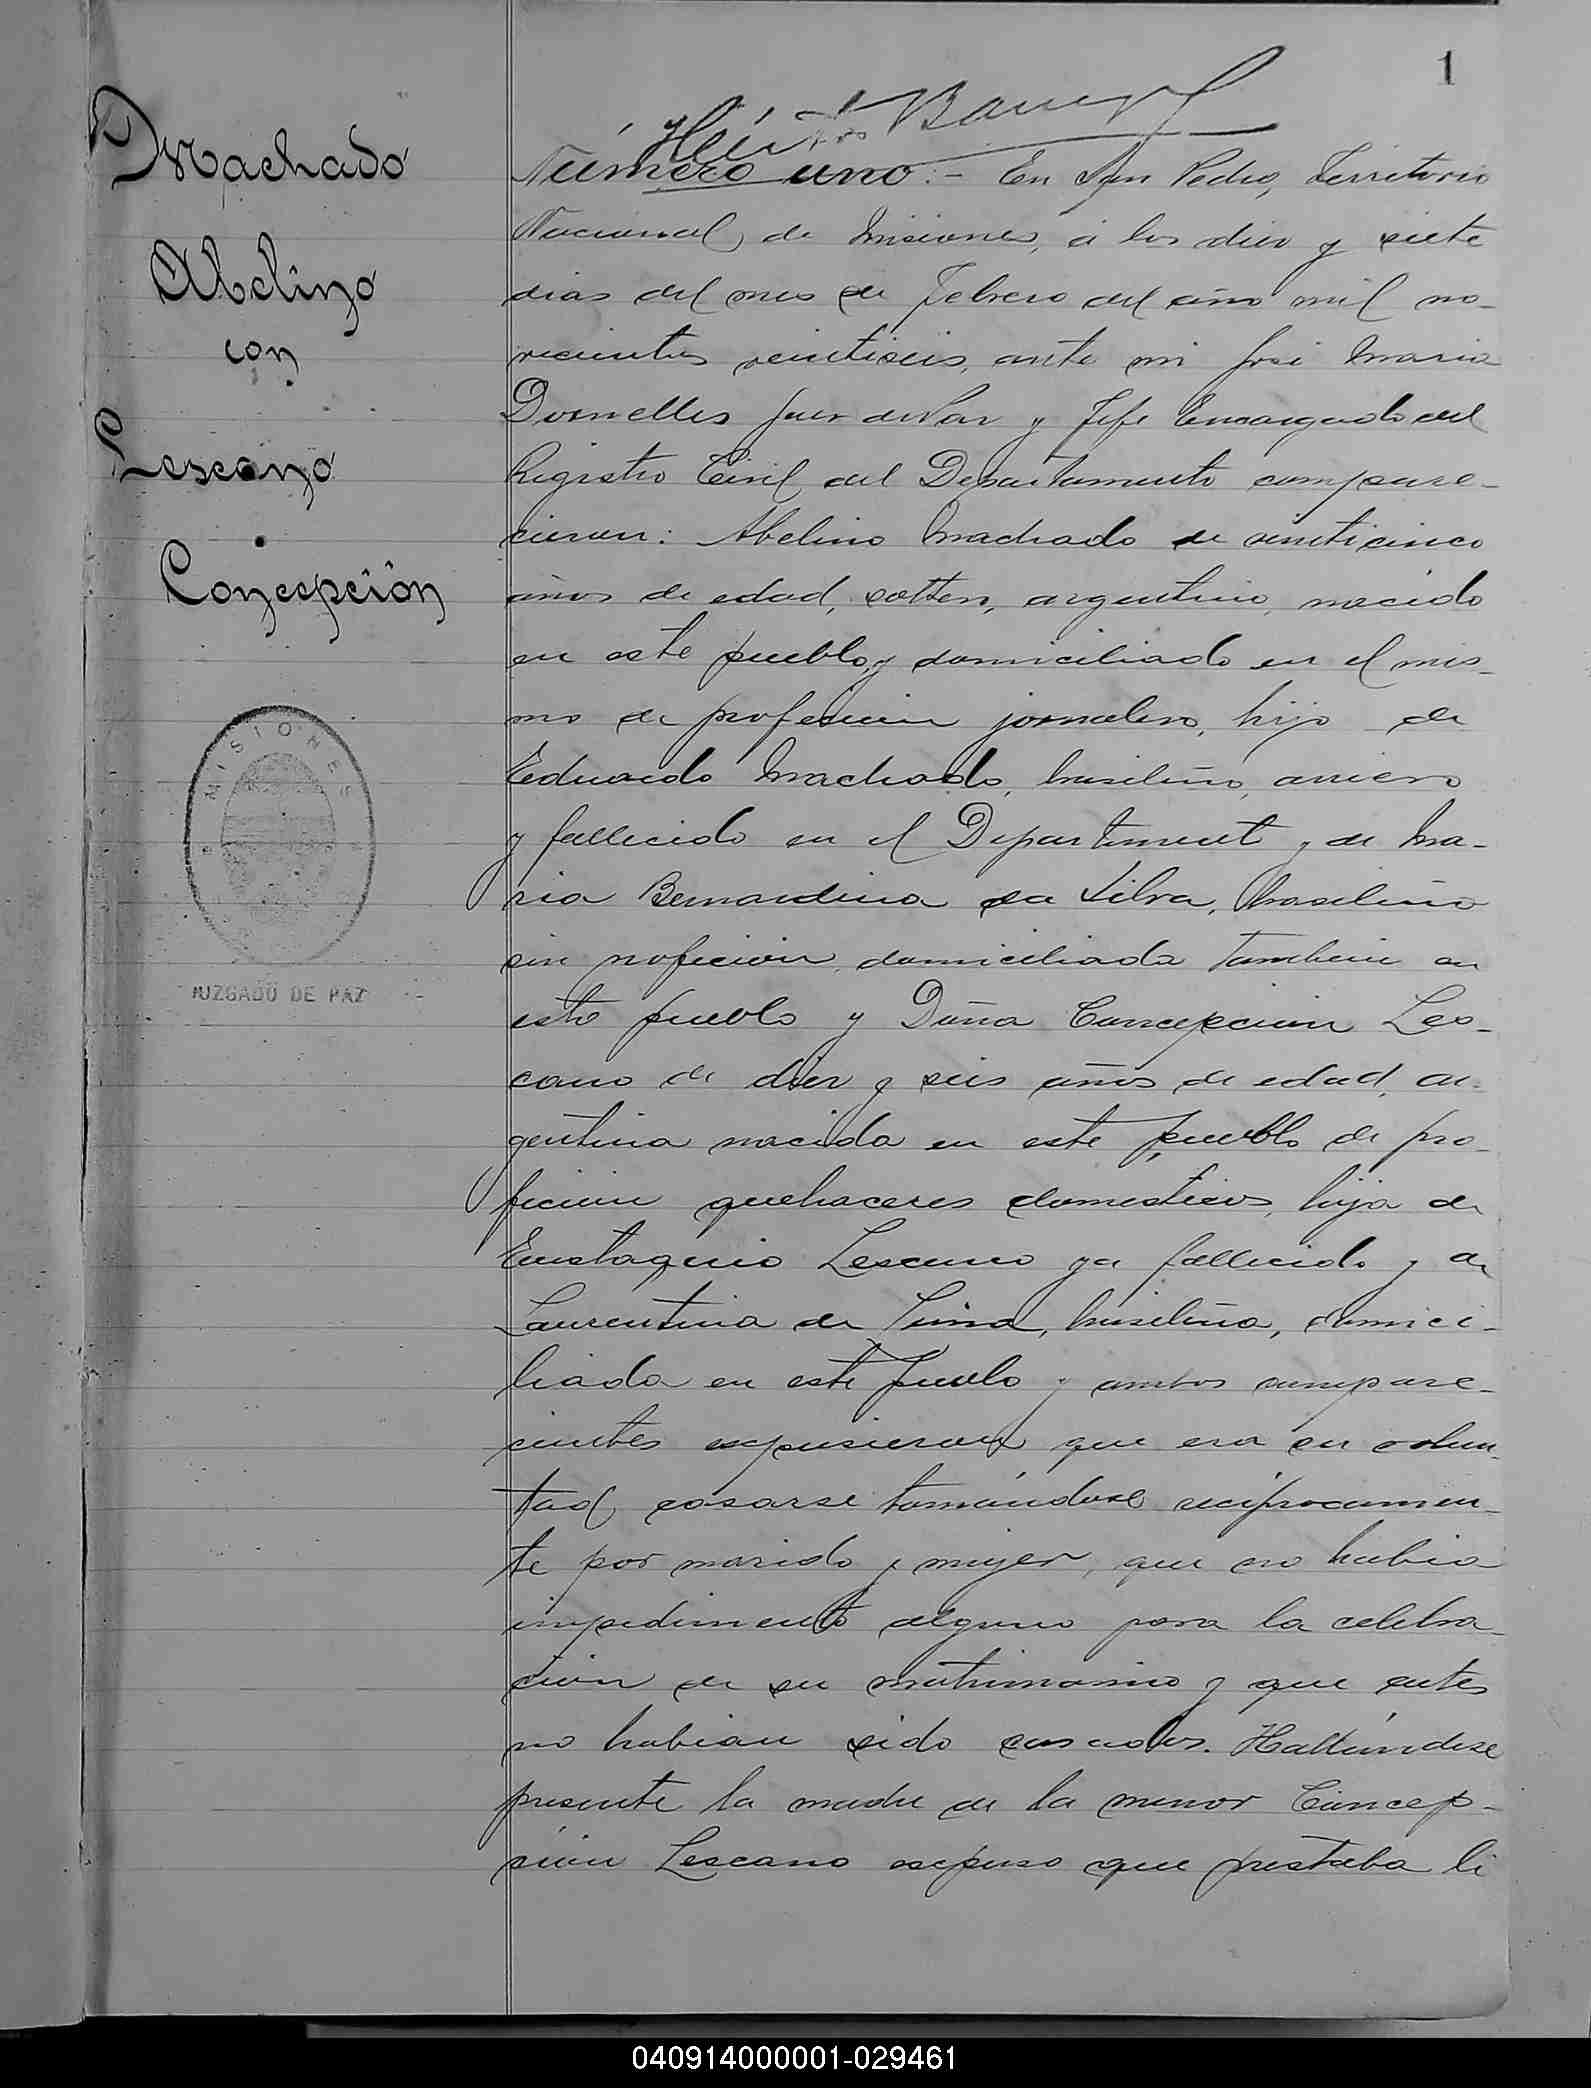 1
Machado
Abelino
con
Lescano
Concepción
MISIONES
JUZGADO DE PAZ
Número uno:- En San Pedro, Territorio
Nacional de Misiones, á los diez y siete
dias del mes de Febrero del año mil no-
vecientos veintiseis, ante mi José Maria
Dornelles Juez de Paz y Jefe Encargado del
Registro Civil del Departamento compare-
cieron: Abelino Machado de veinticinco
años de edad, soltero, argentino, nacido
en este pueblo y domiciliado en el mis-
mo de profesion jornalero, hijo de
Eduardo Machado, brasileño, arriero
y fallecido en el Departament y de Ma-
ria Bernardina da Silva, brasileña
sin profecion, domiciliada tambien en
este pueblo y Doña Concepcion Les-
cano de diez y seis años de edad, ar-
gentina nacida en este pueblo de pro-
fecion quehaceres domesticos, hija de
Eustaquio Lescano ya fallecido y de
Laurentina de Lima, brasileña, domici-
liada en este pueblo y ambos compare-
cientes expusieron que era su volun-
tad casarse tomándose recíprocamen-
te por marido y mujer, que no habia
impedimento alguno para la celebra-
cion de su matrimonio y que antes
no habian sido casados. Hallándose
presente la madre de la menor Concep-
cion Lescano expuso que prestaba li
040914000001-029461